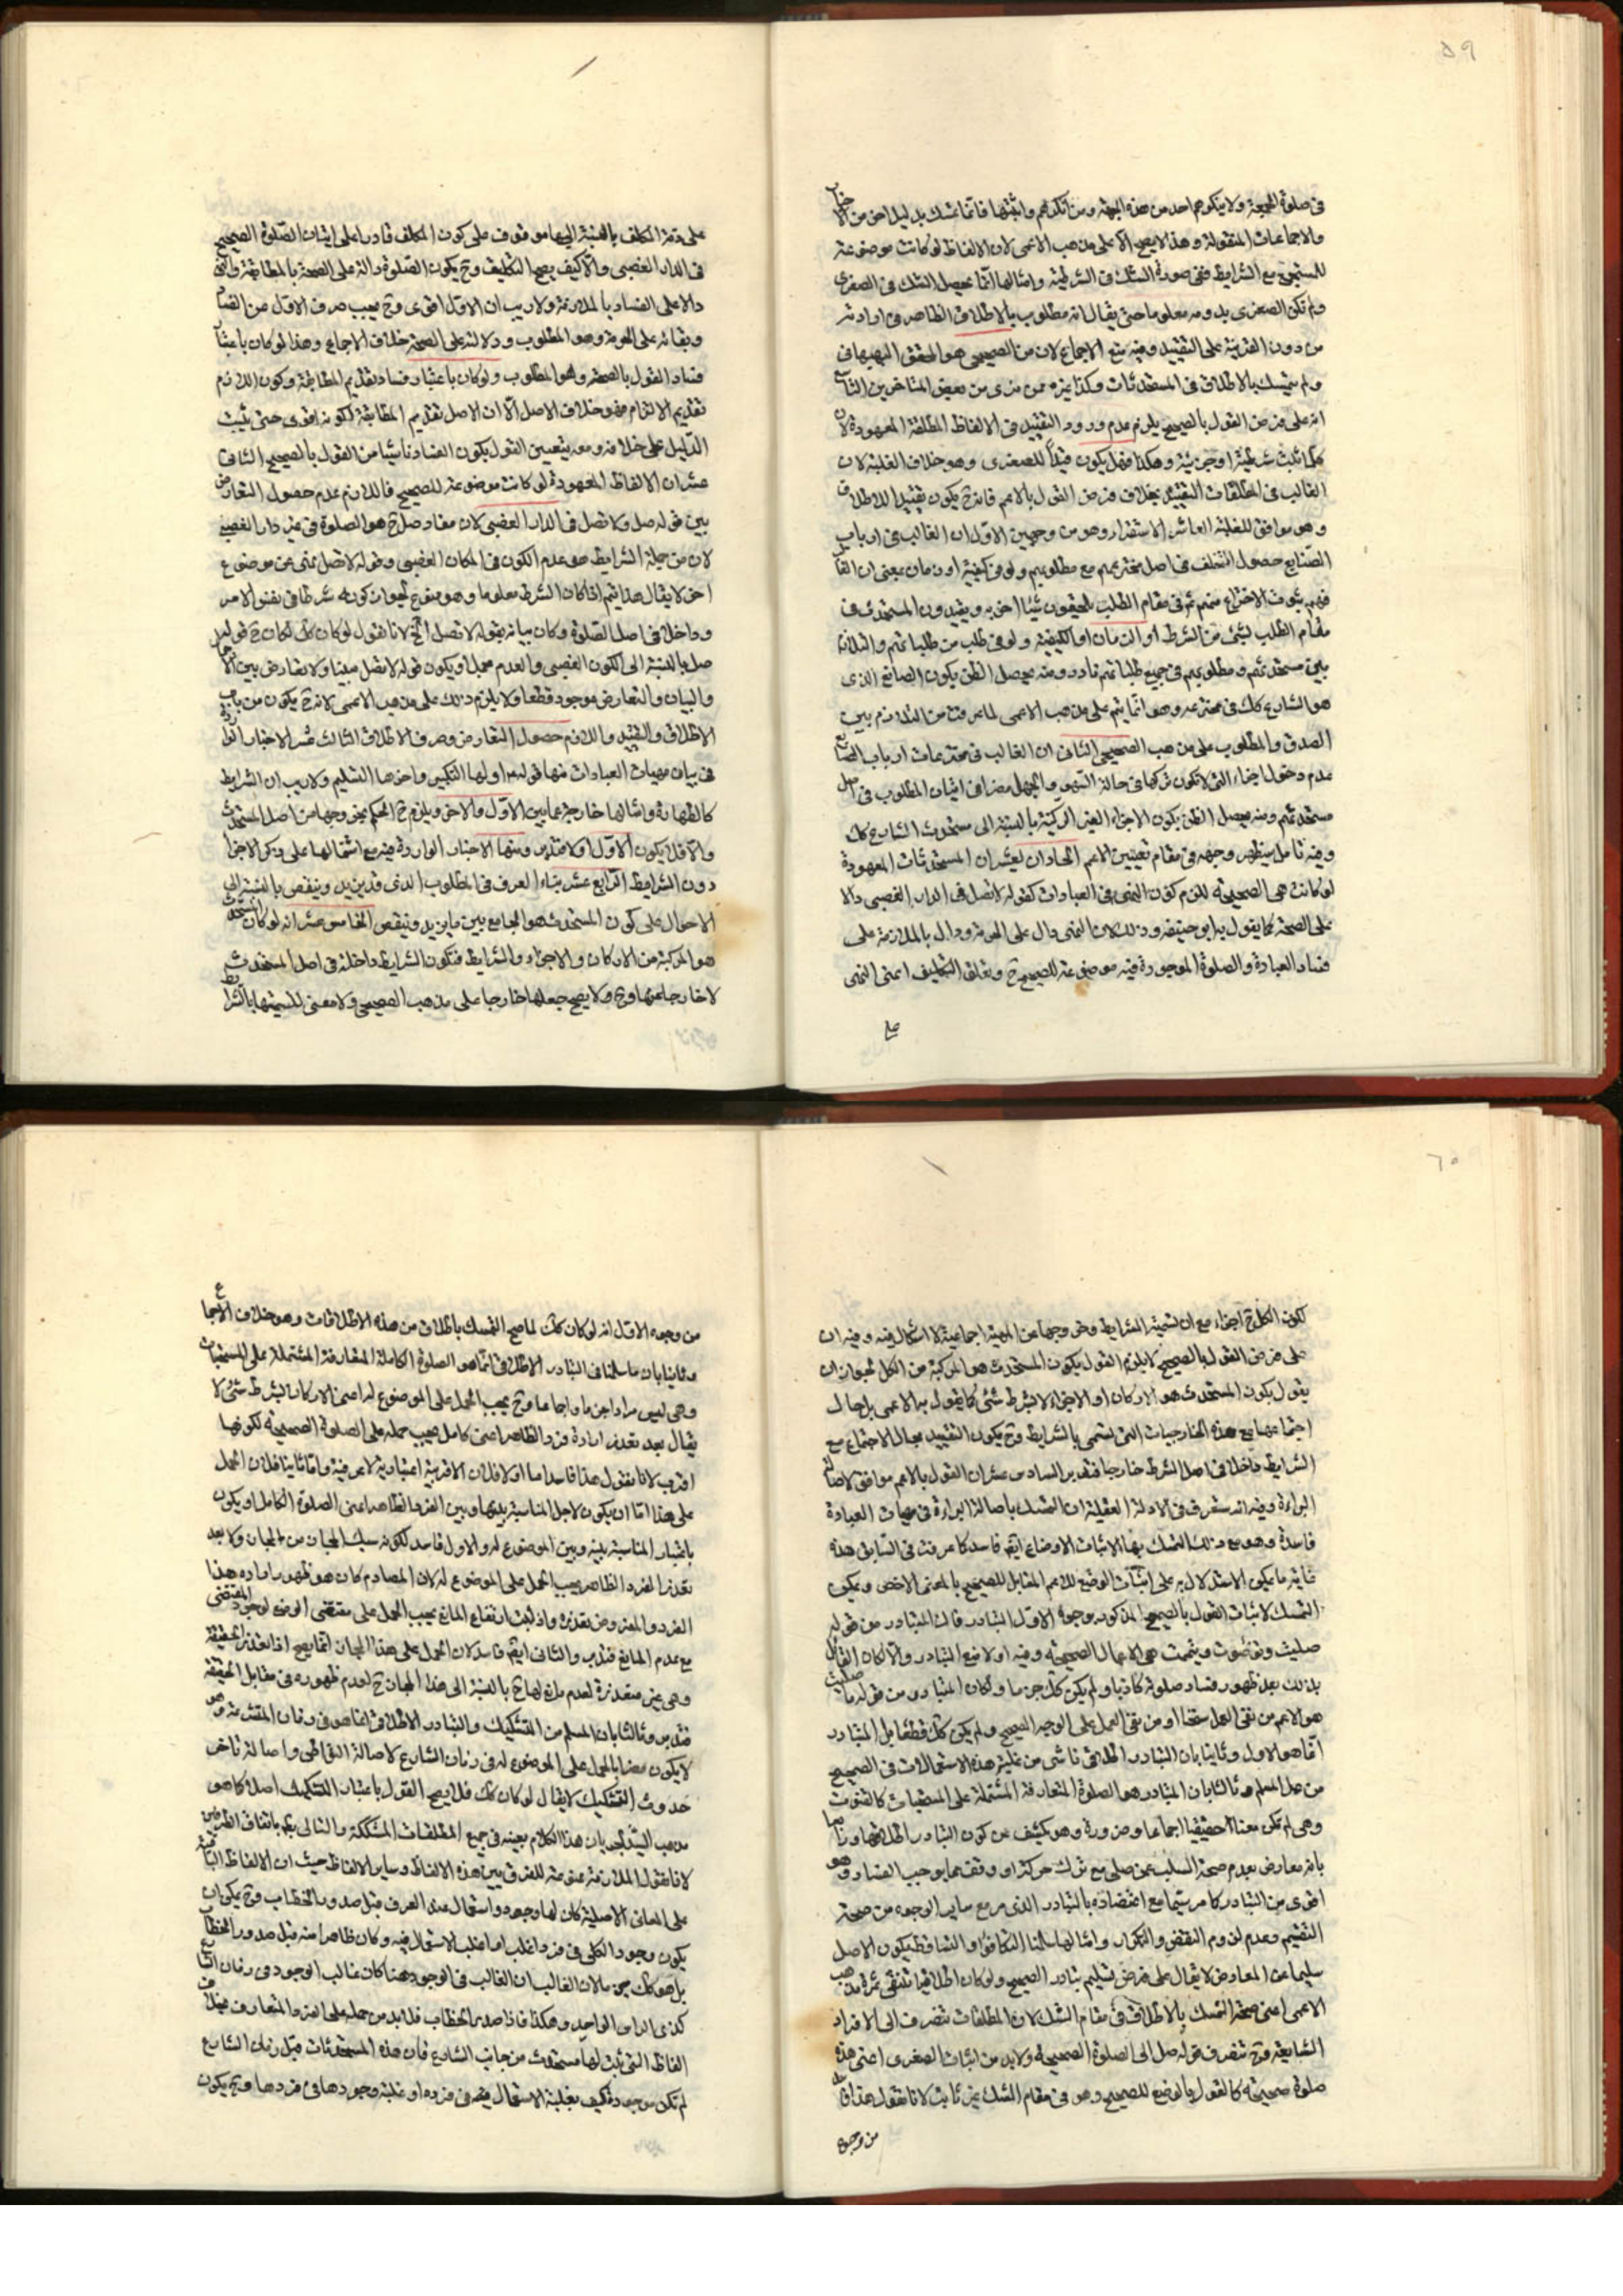 ٥٩
فى صلوة الجمعة ولا ينكرهم احد من هذه الجهة ومن انكرهم وانبتها فانما تمسك بدليل اخر من الاخبار
والاجماعات المنقولة وهذا لا يصح الا على مذهب الاعمى لان الالفاظ لو كانت موضوعة
للمستجمع مع الشرايط ففى صورة الشك فى الشرطية وامثالها انما يحصل الشك فى الصغرى
ولم تكن الصغرى بدونه معلوما حتى يقال انه مطلوب بالاطلاق الظاهر فى ارادته
من دون القرينة على التقييد وفيه منع الاجماع لان من الصحيحى هو المحقق البهبهانى
ولم يتمسك بالاطلاق فى المستحدثات وكذا غيره ممن نرى من بعض المتاخرين التاسع
انه على فرض القول بالصحيح يلزم عدم ورود التقييد فى الالفاظ المطلقة المعهودة لان
كلما ثبت شرطية او جزئية وهكذا فهل يكون قيداً للصغرى وهو خلاف الغلبة لان
الغالب فى المطلقات التقييد بخلاف فرض القول بالاعم فانه ح يكون تقييدا للاطلاق
وهو موافق للغلبة العاشر الاستقراء وهو من وجهين الاول ان الغالب فى ارباب
الصنايع حصول التخلف فى اصل مخترعهم مع مطلوبهم ولو فى كيفية او زمان بمعنى ان الغالب
فيهم بثبوت الاختراع منهم ثم فى مقام الطلب يلحقون شيئا اخر به ويقيدون المستحدث فى
مقام الطلب لشئ من الشرط او الزمان او الكيفية ولو فى طلب من طلباتهم والتلازم
بين مستحدثهم ومطلوبهم فى جميع طلباتهم نادر ومنه يحصل الظن بكون الصانع الذى
هو الشارع كك فى مخترعه وهو انما يتم على مذهب الاعمى لما عرفت من التلازم بين
الصدق والمطلوب على مذهب الصحيحى الثانى ان الغالب فى مخترعات ارباب الصنايع
عدم دخول اجزاء التى لا تكون تركها فى حالة السهو والجهل مضرا فى اتيان المطلوب فى اصل
مستحدثهم ومنه يحصل الظن بكون الاجزاء الغير الركنية بالنسبة الى مستحدث الشارع كك
وفيه تامل سيظهر وجهه فى مقام تعيين الاعم الحاد اى ان المستحدثات المعهودة
لو كانت هى الصحيحة للزم كون النهى فى العبادات كقوله لا تصل فى الدار الغصبى دالا
على الصحة كما يقول به ابو حنيفة وذلك لان النهى دال على الحرمة ودال بالملازمة على
فساد العبادة والصلوة الموجودة فيه موضوعة للصحيح ح وتعلق التكليف اعنى النهى
على ذمة المكلف بالنسبة اليها موقوف على كون المكلف قادرا على اتيان الصلوة الصحيح
فى الدار الغصبى والا كيف يصح التكليف وح يكون الصلوة دالة على الصحة بالمطابقة والنهى
دالا على الفساد بالملازمة ولا ريب ان الاول اقوى وح يجب صرف الاول عن الفساد
وبقائه على الحرمة وهو المطلوب ودلالته على الصحة خلاف الاجماع وهذا لو كان باعتبار
فساد القول بالصحة وهو المطلوب ولو كان باعتبار فساد تقديم المطابقة وكون اللازم
تقديم الالتزام فهو خلاف الاصل الا ان الاصل تقديم المطابقة لكونه اقوى حتى يثبت
الدليل على خلافه ومعه يتعين القول بكون الفساد ناشئا من القول بالصحيح الثانى
عشر ان الالفاظ المعهودة لو كانت موضوعة للصحيح فاللازم عدم حصول التعارض
بين قوله صل ولا تصل فى الدار الغصبى لان مفاد صل ح هو الصلوة فى غير دار الغصبى
لان من جملة الشرايط هو عدم الكون فى المكان الغصبى وقوله لا تصل نهى عن موضوع
اخر لا يقال هذا يتم اذا كان الشرط معلوما وهو ممنوع لجواز كونه شرطا فى نفس الامر
وداخلا فى اصل الصلوة وكان بيانه بقوله لا تصل الخ لانا نقول لو كان كك لكان ح قوله
صل بالنسبة الى الكون الغصبى والعدم مجملا ويكون قوله لا تصل مبينا ولا تعارض بين المجمل
والبيان والتعارض موجود قطعا ولا يلزم ذلك على مذهب الاعمى لانه ح يكون من باب
الاطلاق والتقييد واللازم حصول التعارض وصرف الاطلاق الثالث عشر الاخبار الواردة
فى بيان مهيات العبادات منها قوله اولها التكبير واخرها التسليم ولا ريب ان الشرايط
كالطهارة وامثالها خارجة عما بين الاول والاخر ويلزم ح الحكم بخروجها من اصل المستحدث
والا فلا يكون الاول اولا فتدبر ومنها الاخبار الواردة فيه مع اشتمالها على ذكر الاجزاء
دون الشرايط الرابع عشر بناء العرف فى المطلوب الذى قد يزيد وينقص بالنسبة الى
الاحوال على كون المستحدث هو الجامع بين ما يزيد وينقص الخامس عشر انه لو كان المستحدث
هو المركبة من الاركان والاجزاء والشرايط فتكون الشرايط داخلة فى اصل المستحدث
لا خارجا عنها وح ولا يصح جعلها خارجا على مذهب الصحيحى ولا معنى لتسميتها بالشرايط
٦٠
لكون الكل ح اجزاء مع ان تسمية الشرايط وخروجها عن المهية اجماعية لا اشكال فيه وفيه ان
على فرض القول بالصحيح لا يلزم القول بكون المستحدث هو المركبة من الكل لجواز ان
يقول بكون المستحدث هو الاركان او الاجزاء لا بشرط شئ كما يقول به الاعمى بل حال
اجتماعها مع هذه الخارجيات التى تسمى بالشرايط وح يكون التقييد بحال الاجتماع مع
الشرايط داخلا فى اصل الشرط خارجا فتدبر السادس عشر ان القول بالاعم موافق لاصالة
البرائة وفيه انه ستعرف فى الادلة العقلية ان التمسك باصالة البرائة فى مهيات العبادة
فاسدة وهو مع ذلك التمسك بها لاثبات الاوضاع ايضا فاسد كما عرفت فى السابق هذه
غاية ما يمكن الاستدلال به على اثبات الوضع للاعم المقابل للصحيح بالمعنى الاخص ويمكن
التمسك لاثبات القول بالصحيح المذكور بوجوه الاول التبادر فان المتبادر من قوله
صليت وتوضئت وتيممت هى الاعمال الصحيحة وفيه اولا منع التبادر والا لكان القائل
بذلك بعد ظهور فساد صلوته كاذبا ولم يكن كك جزما ولكان المتبادر من قوله ما صليت
هو الاعم من نفى العمل سقطا او من نفى العمل على الوجه الصحيح ولم يكن كك قطعا بل المتبادر
انما هو الاول وثانيا بان التبادر اطلاقى ناشى من غلبة هذه الاستعمالات فى الصحيح
من عمل المسلم وثالثا بان المتبادر هو الصلوة المتعارفة المشتملة على المستحبات كالقنوت
وهى لم تكن معناها حقيقيا اجماعا وضرورة وهو يكشف عن كون التبادر اطلاقيا ورابعا
بانه معارض بعدم صحة السلب عمن صلى مع ترك حركة او وقف مما يوجب الفساد وهو
اقوى من التبادر كما مر سيما مع اعتضاده بالتبادر الذى مر مع ساير الوجوه من صحة
التقسيم وعدم لزوم النقض والتكرار وامثالها سلمنا التكافؤ او التساقط يكون الاصل
سليما عن المعارض لا يقال على فرض تسليم تبادر الصحيح ولو كان اطلاقيا تنتفى ثمرة مذهب
الاعمى اعنى صحة التمسك بالاطلاق فى مقام الشك لان المطلقات تنصرف الى الافراد
الشايعة وح تنصرف قوله صل الى الصلوة الصحيحة ولا بد من اثبات الصغرى اعنى هذه
صلوة صحيحة كالقول بالوضع للصحيح وهو فى مقام الشك غير ثابت لانا نقول هذا فاسد
من وجوه
من وجوه الاول انه لو كان كك لما صح التمسك باطلاق من هذه الاطلاقات وهو خلاف الاجماع
وثانيا بان ما سلمنا فى التبادر الاطلاقى انما هو الصلوة الكاملة المتعارفة المشتملة على المستحبات
وهى ليس مرادا جزما واجماعا وح يجب الحمل على الموضوع له اعنى الاركان لبشرط شئ لا
يقال بعد تعذر ارادة فرد الظاهر اعنى كامل يجب حمله على الصلوة الصحيحة لكونها
اقرب لانا نقول هذا فاسد اما اولا فلان الاقربية اعتبارية لا عرفية واما ثانيا فلان الحمل
على هذا اما ان يكون لاجل المناسبة بينها وبين الفرد الظاهر اعنى الصلوة الكامل او يكون
باعتبار المناسبة بينه وبين الموضوع له والاول فاسد لكونه سبك المجاز من المجاز ولا بعد
تعذر الفرد الظاهر يجب الحمل على الموضوع له لان المصادم كان هو ظهور ارادة هذا
الفرد والمفروض تعذره واذا ثبت ارتفاع المانع يجب الحمل على مقتضى الوضع لوجود المقتضى
مع عدم المانع فتدبر والثانى ايضا فاسد لان الحمل على هذا المجاز انما يصح اذا تعذر الحقيقة
وهى غير متعذرة لعدم مانع لها ح بالنسبة الى هذا المجاز ح لعدم ظهوره فى مقابل الحقيقة
فتدبر وثالثا بان المسلم من التشكيك والتبادر الاطلاقى انما هو فى زمان المتشرعة وهو
لا يكون مضرا بالحمل على الموضوع له فى زمان الشارع لاصالة التواطى واصالة تاخر
حدوث التشكيك لا يقال لو كان كك فلا يصح القول باعتبار التشكيك اصلا كما هو
مذهب السيد لجريان هذا الكلام بعينه فى جميع المطلقات المشككة والتالى بط باتفاق الطرفين
لانا نقول الملازمة ممنوعة للفرق بين هذه الالفاظ وساير الالفاظ حيث ان الالفاظ الباقية
على المعانى الاصلية كان لها وجود واستعمال عند العرف قبل صدور الخطاب وح يمكن ان
يكون وجود الكلى فى فرد اغلب او اغلب الاستعمال فيه وكان ظاهرا منه قبل صدور الخطاب
بل هو كك جزما لان الغالب ان الغالب فى الوجود هنا كان غالب الوجود فى زمان الشارع
كذى الراس الواحد وهكذا فاذا صدر الخطاب فلا بد من حمله على الفرد المتعارف بخلاف
الفاظ التى ثبت لها مستحدث من جانب الشارع فان هذه المستحدثات قبل زمان الشارع
لم تكن موجودة فكيف بغلبة الاستعمال فيه فى فرده او غلبة وجودها فى فردها وح يكون